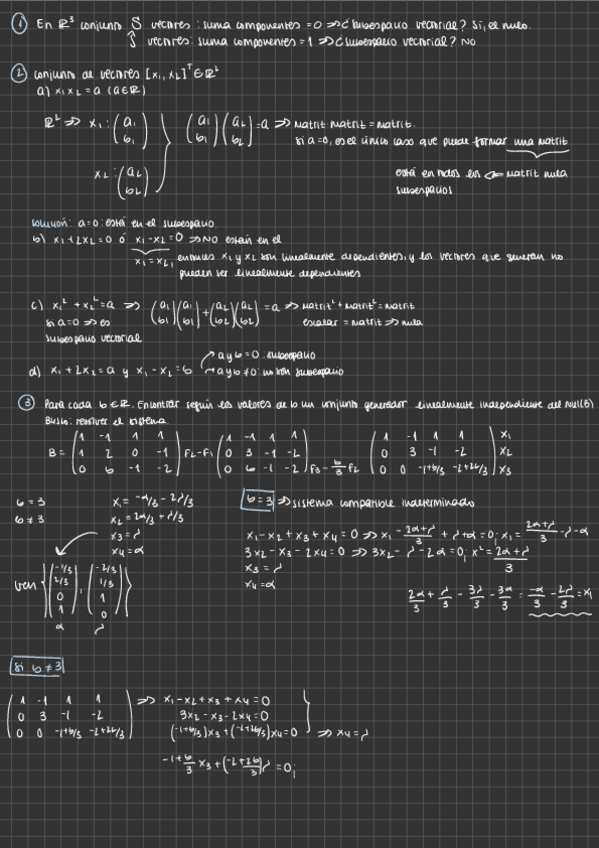 ① En ℝ³ conjunto S vectores : suma componentes = 0 => ¿subespacio vectorial? Sí, el nulo.
S vectores : suma componentes = 1 => ¿subespacio vectorial? NO
② conjunto de vectores [x₁, x₂]ᵀ ∈ ℝ²
a) x₁x₂ = a (a∈ℝ)
ℝ² => x₁ : (a₁ b₁) } (a₁ b₁)(a₂ b₂) = a => matriz·matriz = matriz.
x₂ : (a₂ b₂)
si a=0, es el único caso que puede formar una matriz
está en todos los <= matriz nula
subespacios
solución: a=0 : está en el subespacio
b) x₁ + 2x₂ = 0 ó x₁ - x₂ = 0 => NO están en el
x₁ = x₂, entonces x₁ y x₂ son linealmente dependientes, y los vectores que generan no
pueden ser linealmente dependientes
c) x₁² + x₂² = a => (a₁ b₁)(a₁ b₁) + (a₂ b₂)(a₂ b₂) = a => matriz² + matriz² = matriz
si a=0 => es
escalar = matriz => nula
subespacio vectorial
a y b = 0 : subespacio
d) x₁ + 2x₂ = a y x₁ - x₂ = b
a y b ≠ 0 : no son subespacio
③ Para cada b∈ℝ. Encontrar según los valores de b un conjunto generador linealmente independiente del Nul(B)
Busco: resolver el sistema
B = (1 -1 1 1 / 1 2 0 -1 / 0 b -1 -2) F₂-F₁ (1 -1 1 1 / 0 3 -1 -2 / 0 b -1 -2) F₃ - b/3 F₂ (1 -1 1 1 / 0 3 -1 -2 / 0 0 -1+b/3 -2+2b/3) x₁ x₂ x₃
b = 3
b ≠ 3
x₁ = -α/3 - 2λ/3
x₂ = 2α/3 + λ/3
x₃ = λ
x₄ = α
b = 3 => sistema compatible indeterminado
x₁ - x₂ + x₃ + x₄ = 0 => x₁ - (2α+λ)/3 + λ + α = 0; x₁ = (2α+λ)/3 - λ - α
3x₂ - x₃ - 2x₄ = 0 => 3x₂ - λ - 2α = 0; x² = (2α+λ)/3
x₃ = λ
x₄ = α
{(-1/3 2/3 0 1), (-2/3 1/3 1 0)}
α λ
2α/3 + λ/3 - 3λ/3 - 3α/3 = -α/3 - 2λ/3 = x₁
si b ≠ 3
(1 -1 1 1 / 0 3 -1 -2 / 0 0 -1+b/3 -2+2b/3) => x₁ - x₂ + x₃ + x₄ = 0
3x₂ - x₃ - 2x₄ = 0
(-1+b/3)x₃ + (-2+2b/3)x₄ = 0 => x₄ = λ
-1+b/3 x₃ + (-2+2b/3)λ = 0;